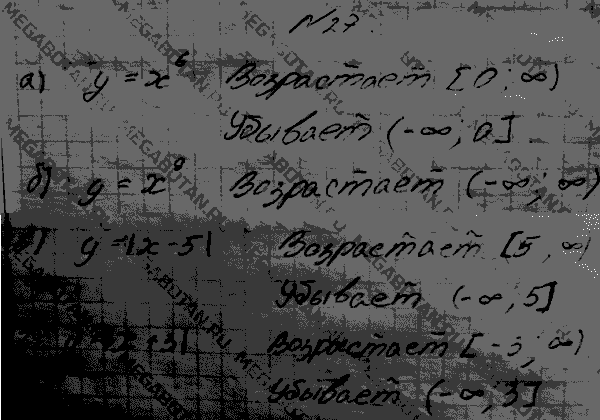 N 27.
а) y = x⁶ Возрастает [0; ∞)
Убывает (-∞; 0]
б) y = x⁹ Возрастает (-∞; ∞)
в) y = |x - 5| Возрастает [5, ∞)
Убывает (-∞; 5]
x + 3| Возрастает [-3; ∞)
Убывает (-∞ 3]
MEGABOTAN.RU